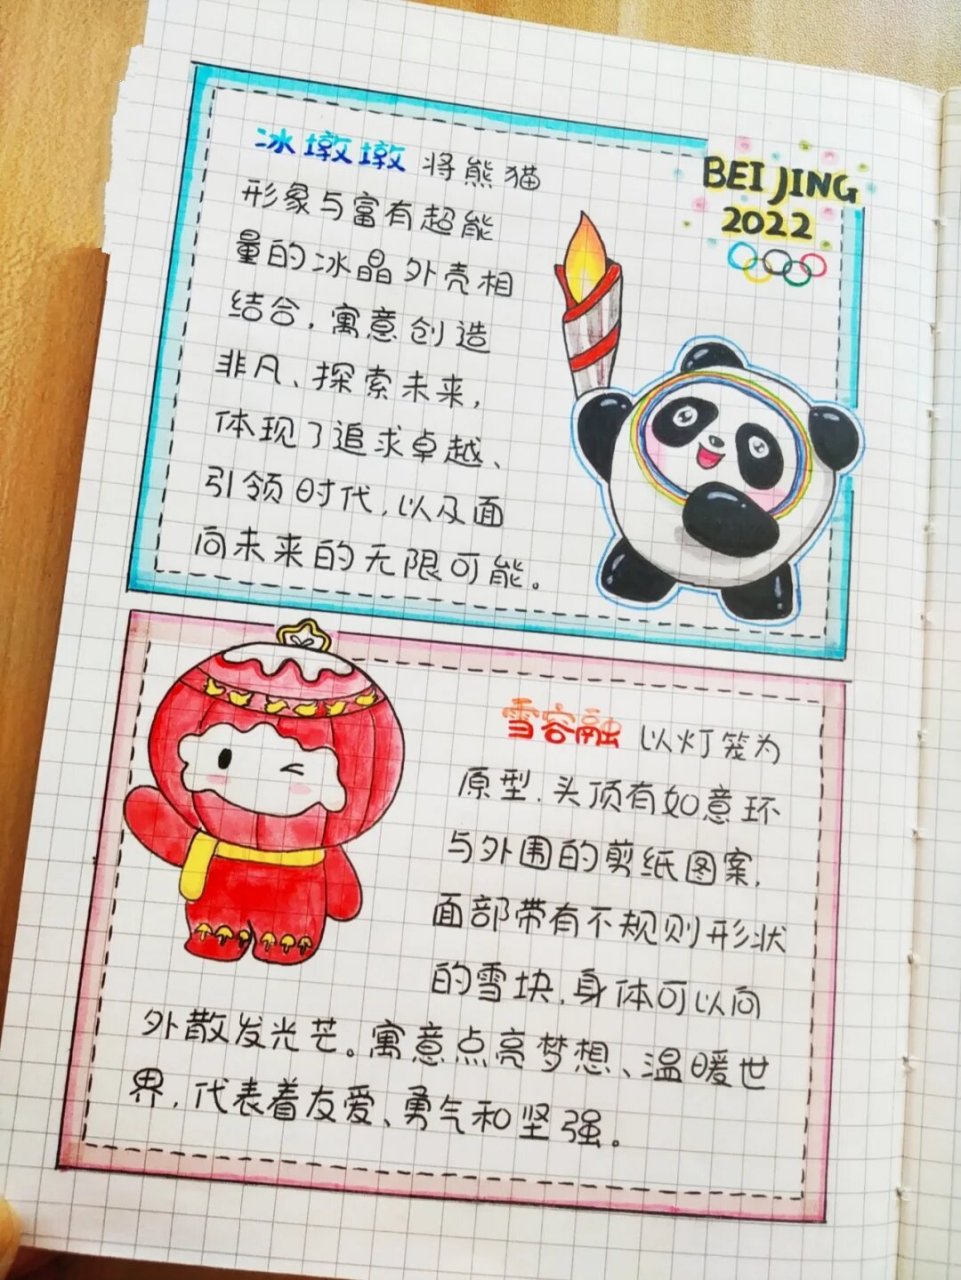 冰墩墩 将熊猫
形象与富有超能
量的冰晶外壳相
结合，寓意创造
非凡、探索未来，
体现了追求卓越、
引领时代，以及面
向未来的无限可能。
BEIJING
2022
雪容融 以灯笼为
原型，头顶有如意环
与外围的剪纸图案，
面部带有不规则形状
的雪块，身体可以向
外散发光芒。寓意点亮梦想、温暖世
界，代表着友爱、勇气和坚强。